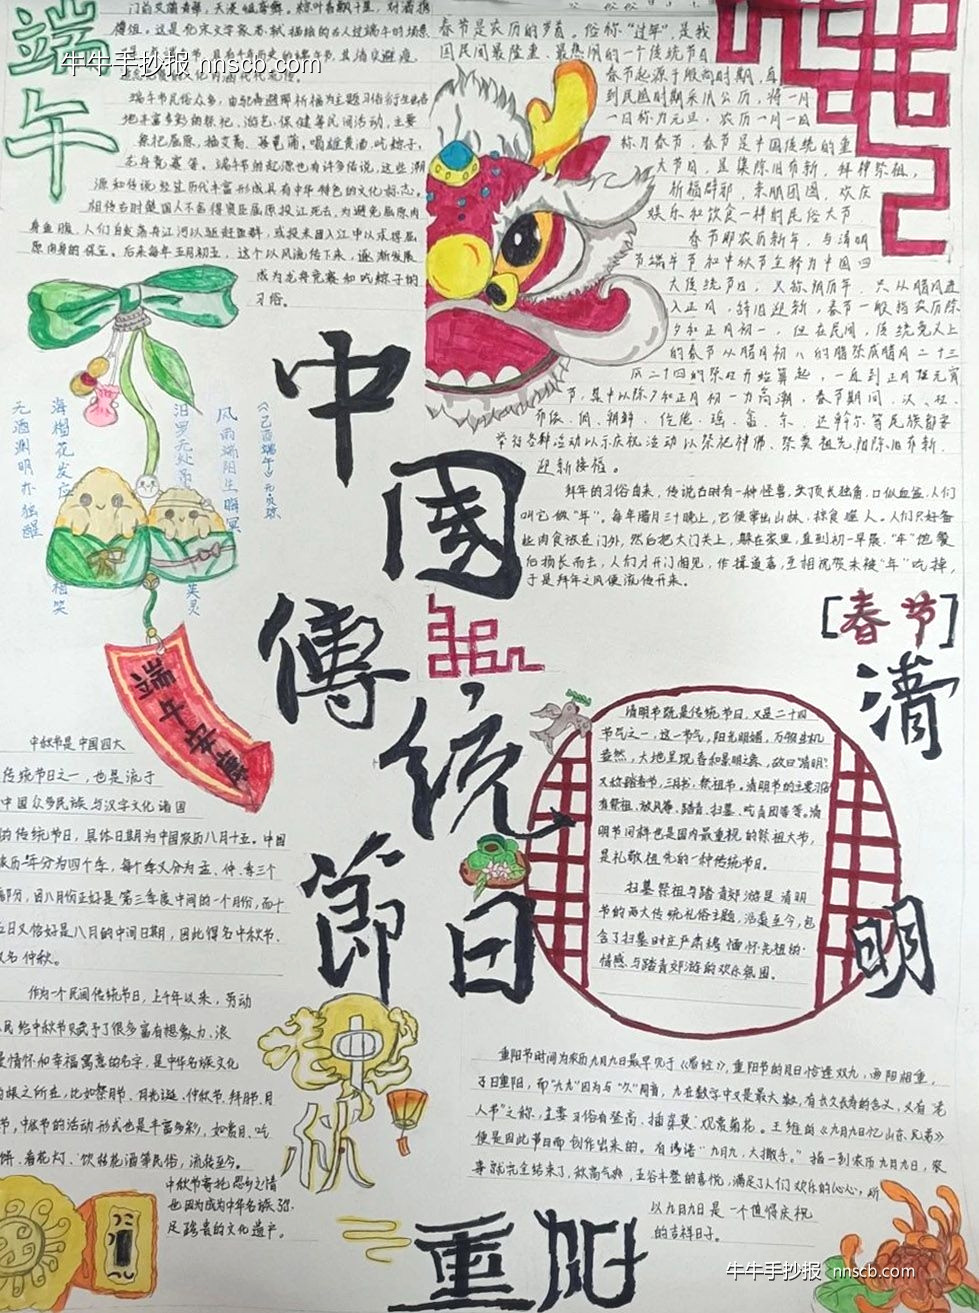 端午
牛牛手抄报 nnscb.com
端午节民俗众多，由驱毒避邪祈福为主题习俗衍生出各
地丰富多彩的祭祀、游艺、保健等民间活动，主要
祭祀屈原、插艾蒿、挂菖蒲、喝雄黄酒、吃粽子、
龙舟竞赛等。端午节的起源也有许多传说，这些渊
源和传说经过历代丰富形成具有中华特色的文化标志。
相传古时楚国人不舍得贤臣屈原投江死去，为避免屈原肉
身鱼腹，人们自发荡舟江河以驱赶鱼群，或投米团入江中以求得屈
原肉身的保全。后来每年五月初五，这个以风流传下来，逐渐发展
成为龙舟竞赛和吃粽子的
习俗。
春节是农历的岁首，俗称“过年”，是我
国民间最隆重、最热闹的一个传统节日
春节起源于殷商时期，直
到民国时期采用公历，将一月
一日称为元旦，农历一月一日
称为春节，春节是中国传统的重
大节日，且集除旧布新，拜神祭祖，
祈福辟邪，亲朋团圆，欢庆
娱乐和饮食一样的民俗大节
春节即农历新年，与清明
节端午节和中秋节至称为中国四
大传统节日，又称阴历年，只从腊月进
入正月，辞旧迎新，春节一般指农历除
夕和正月初一，但在民间，传统意义上
的春节从腊月初八的腊祭或腊月二十三
或二十四的祭灶开始算起，一直到正月性元宵
节，其中以除夕和正月初一为高潮，春节期间，汉、壮、
布依、侗、朝鲜、仡佬、瑶、畲、京、达斡尔等民族都要
举行各种活动以示庆祝活动以祭祀神佛、祭奠祖先、除旧布新、
迎新接福。
拜年的习俗自来，传说古时有一种怪兽，头顶长独角，口似血盆，人们
叫它做“年”。每年腊月三十晚上，它便窜出山林，掠食噬人。人们只好备
些肉食放在门外，然后把大门关上，躲在家里，直到初一早晨，“年”饱餐
后扬长而去，人们才开门相见，作揖道喜，互相祝贺未被“年”吃掉，
于是拜年之风便流传开来。
[春节]
《己酉端午》元·贝琼
风雨端阳生晦冥
汨罗无处吊英灵
海榴花发应相笑
无酒渊明亦独醒
端午安康
中国傳統節日
清明
清明节既是传统节日，又是二十四
节气之一，这一节气，阳光明媚，万物生机
盎然，大地呈现春和景明之象，故曰“清明”，
又称踏春节、三月节、祭祖节。清明节的主要习俗
有祭祖、放风筝、踏青、扫墓、吃青团等等。清
明节同样也是国内最重视的祭祖大节，
是礼敬祖先的一种传统节日。
扫墓祭祖与踏青郊游是清明
节的两大传统礼俗主题，沿袭至今，包
含了扫墓时庄严肃穆 缅怀先祖的
情感与踏青郊游的欢乐氛围。
中秋节是中国四大
传统节日之一，也是流于
中国众多民族与汉字文化诸国
的传统节日，具体日期为中国农历八月十五。中国
农历年分为四个季，每个季又分为孟、仲、季三个
部分，因八月份正好是第三季度中间的一个月份，而十
五日又恰好是八月的中间日期，因此得名中秋节、
又名仲秋。
作为一个民间传统节日，上千年以来，劳动
人民给中秋节赋予了很多富有想象力、浪
漫情怀和幸福寓意的名字，是中华名族文化
的根之所在，比如祭月节、月光诞、仲秋节、拜月节、月
节，中秋节的活动形式也是丰富多彩，如赏月、吃
饼、看花灯、饮桂花酒等民俗，流传至今。
中秋节寄托思乡之情
也因为成为中华名族
足珍贵的文化遗产。
中秋
重阳节时间为农历九月九日最早见于《易经》，重阳节的月日恰逢双九，两阳相重，
又曰重阳，而“九九”因为与“久久”同音，九在数字中又是最大数，有长久长寿的含义，又有“老
人节”之称，主要习俗有登高、插茱萸、观赏菊花。王维的《九月九日忆山东兄弟》
便是因此节日而创作出来的。有诗语“九月九，大撒手。”指一到农历九月九日，农
事就完全结束了，秋高气爽，五谷丰登的喜悦，满足了人们欢乐的心心，所
以九月九日是一个值得庆祝
的吉祥日子。
重阳
牛牛手抄报 nnscb.com